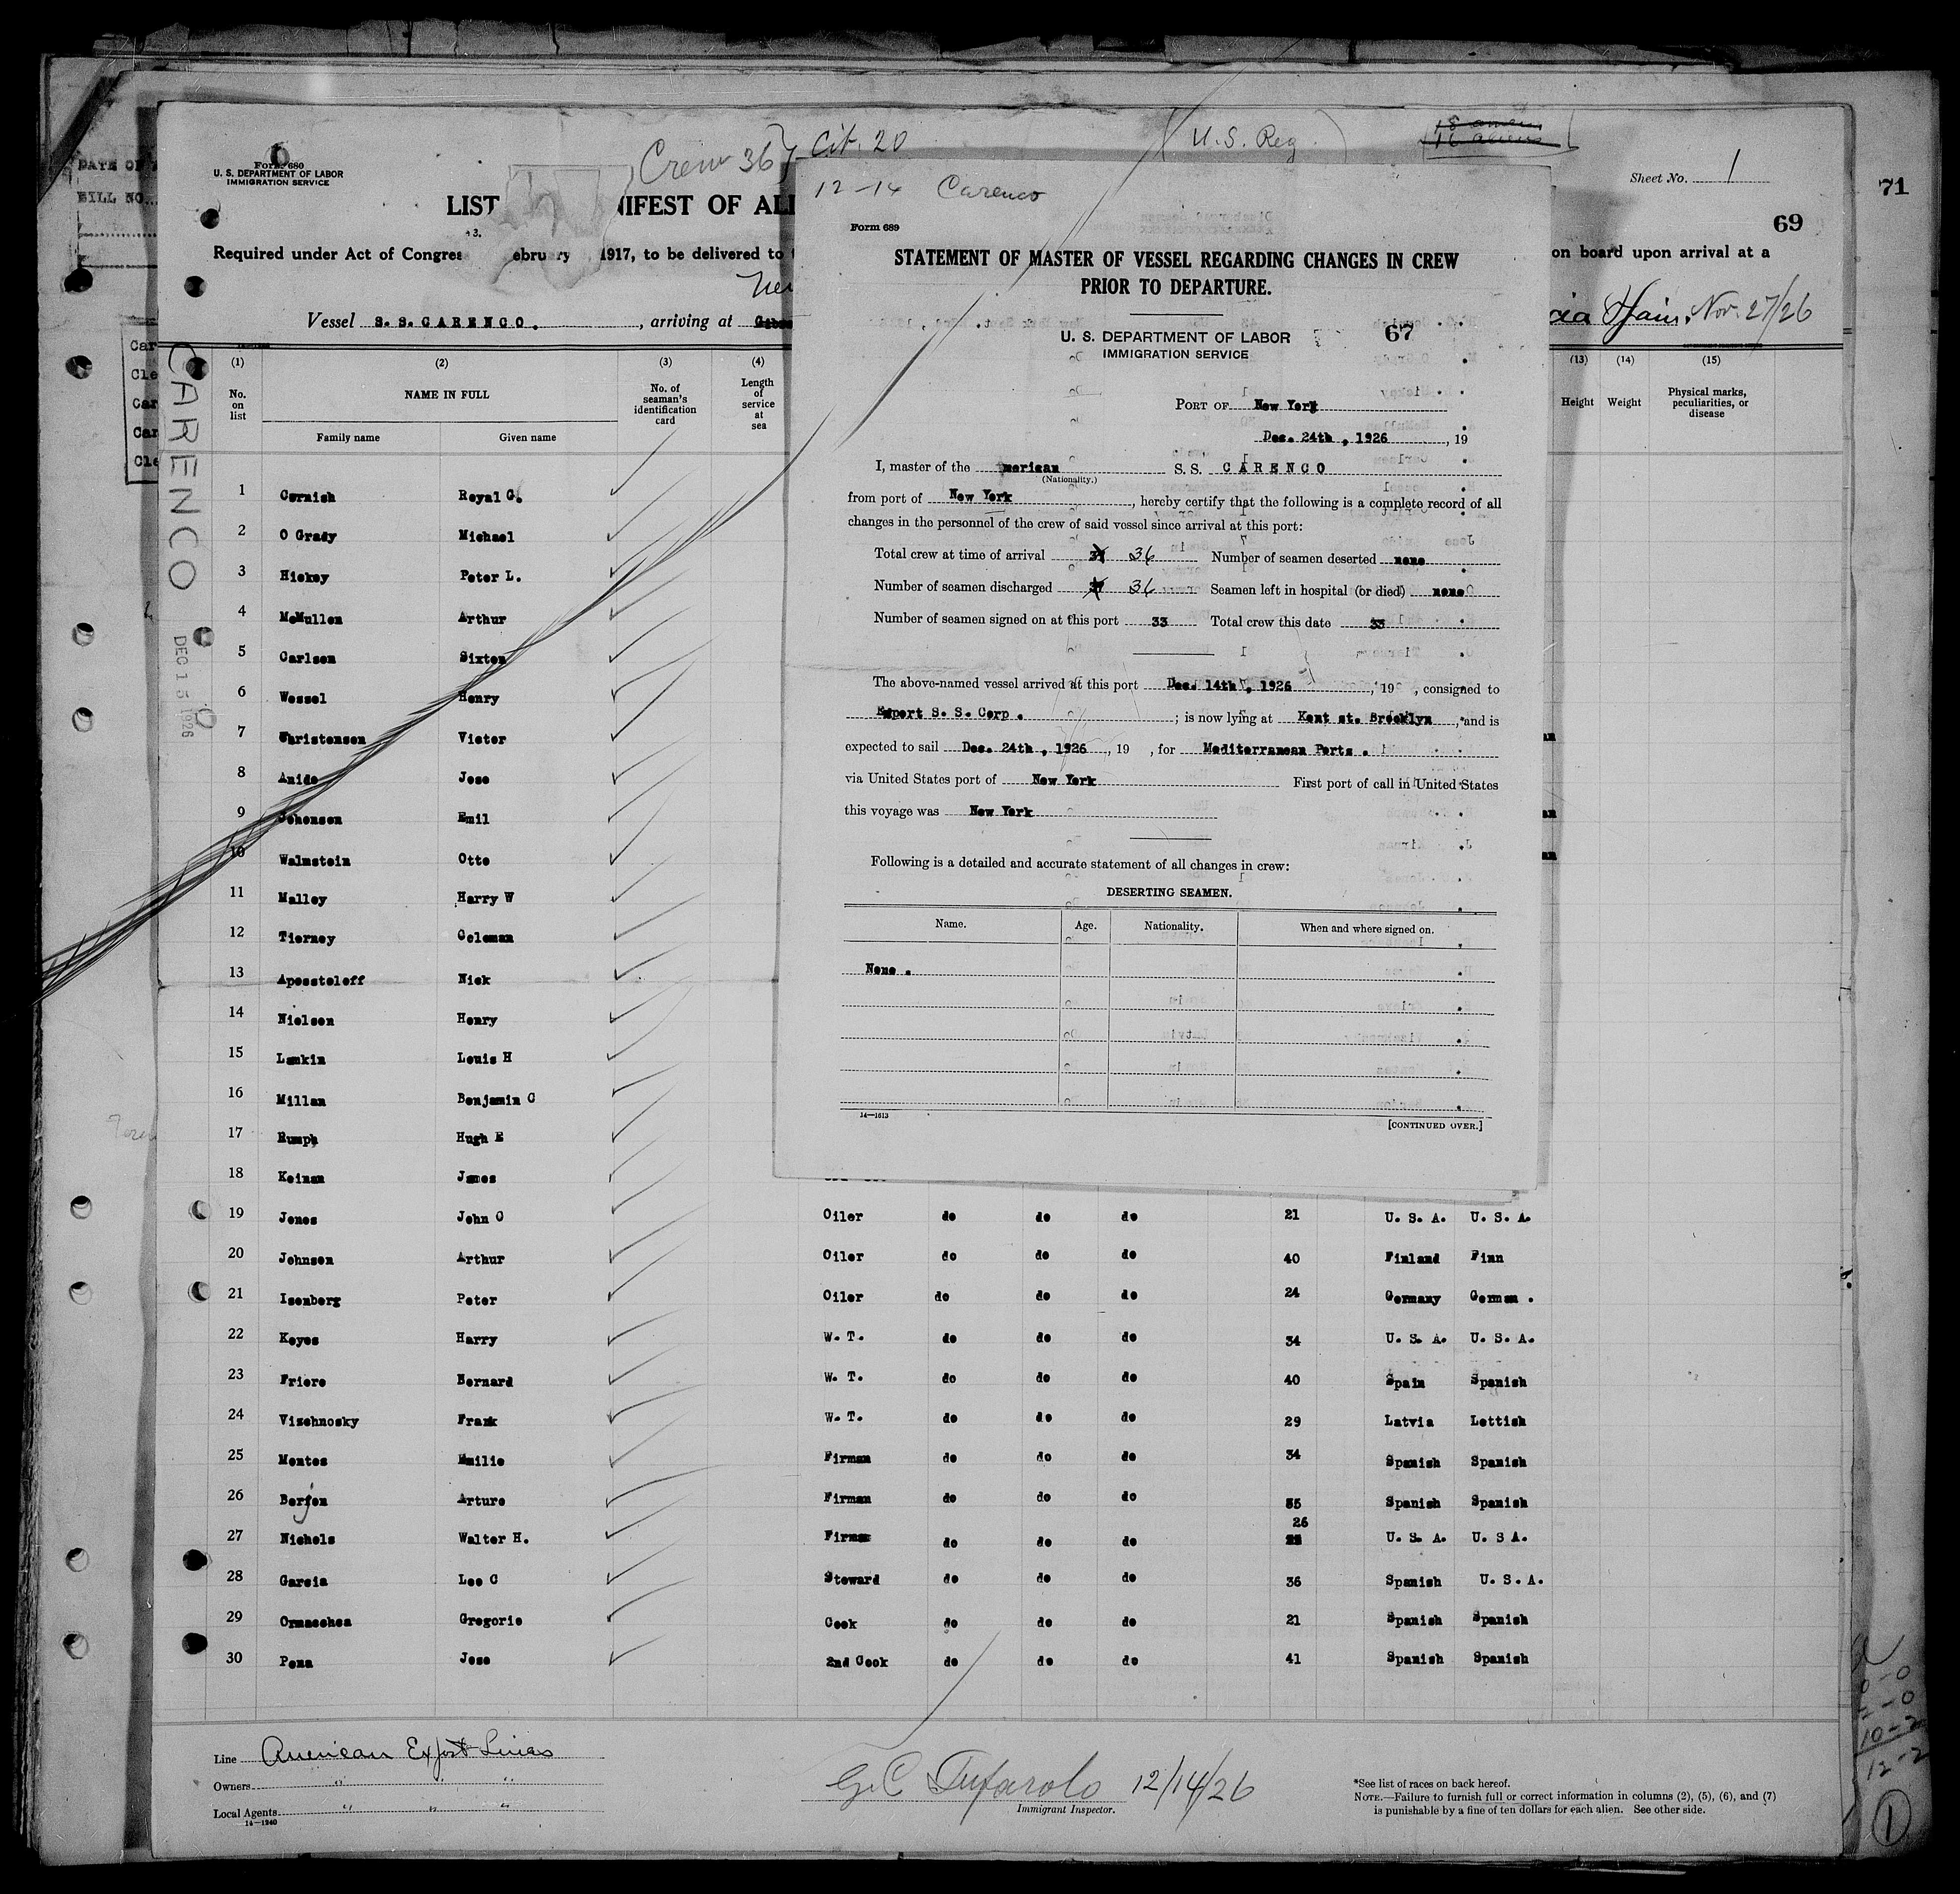 Crew 36 Cit. 20 (U.S. Reg.)
18 aliens
16 aliens
Form 680
U. S. DEPARTMENT OF LABOR
IMMIGRATION SERVICE
Sheet No. 1
71
69
DATE OF
BILL NO.
LIST NIFEST OF ALI
Required under Act of Congres ebruary 1917, to be delivered to
on board upon arrival at a
Vessel S.S.CARENCO. , arriving at
Nov. 27/26
CARENCO
DEC 15 1926
(1) (2) (3) (4)
No. on list
NAME IN FULL
Family name Given name
No. of seaman's identification card
Length of service at sea
(13) (14) (15)
Height Weight Physical marks, peculiarities, or disease
1 Cornish Royal G.
2 O Grady Michael
3 Hickey Peter L.
4 McMullen Arthur
5 Carlsen Sixten
6 Wessel Henry
7 Christensen Victor
8 Anido Jose
9 Johensen Emil
10 Walmstein Otto
11 Malloy Harry W
12 Tierney Coleman
13 Aposstoloff Nick
14 Nielsen Henry
15 Lamkin Louis H
16 Millan Benjamin C
17 Rumph Hugh E
18 Keinan James
19 Jones John O Oiler do do do 21 U. S. A. U. S. A.
20 Johnsen Arthur Oiler do do do 40 Finland Finn
21 Isenberg Peter Oiler do do do 24 Germany German .
22 Keyes Harry W. T. do do do 34 U. S. A. U. S. A.
23 Friere Bernard W. T. do do do 40 Spain Spanish
24 Vizchnosky Frank W. T. do do do 29 Latvia Lettish
25 Montes Emilio Firman do do do 34 Spanish Spanish
26 Berjon Arturo Firman do do do 35 Spanish Spanish
27 Nichols Walter H. Firman do do do 26 U. S. A. U. S A.
28 Garcia Leo C Steward do do do 36 Spanish U. S. A.
29 Ormaechea Gregorio Cook do do do 21 Spanish Spanish
30 Pena Jose 2nd Cook do do do 41 Spanish Spanish
Line American Export Lines
Owners " " "
Local Agents " " "
14—1240
12/14/26
Immigrant Inspector.
*See list of races on back hereof.
NOTE.—Failure to furnish full or correct information in columns (2), (5), (6), and (7)
is punishable by a fine of ten dollars for each alien. See other side.
10-2
12-2
1
12-14 Carenco
Form 689
STATEMENT OF MASTER OF VESSEL REGARDING CHANGES IN CREW
PRIOR TO DEPARTURE.
U. S. DEPARTMENT OF LABOR
IMMIGRATION SERVICE
67
PORT OF New York
Dec. 24th , 1926 , 19
I, master of the American S. S. CARENCO
(Nationality.)
from port of New York , hereby certify that the following is a complete record of all
changes in the personnel of the crew of said vessel since arrival at this port:
Total crew at time of arrival 36 Number of seamen deserted none
Number of seamen discharged 36 Seamen left in hospital (or died) none
Number of seamen signed on at this port 33 Total crew this date 33
The above-named vessel arrived at this port Dec. 14th , 1926 , 19 , consigned to
Export S. S. Corp . ; is now lying at Kent st. Brooklyn , and is
expected to sail Dec. 24th , 1926 , 19 , for Mediterranean Ports .
via United States port of New York First port of call in United States
this voyage was New York
Following is a detailed and accurate statement of all changes in crew:
DESERTING SEAMEN.
Name. Age. Nationality. When and where signed on.
None .
14—1613
[CONTINUED OVER.]